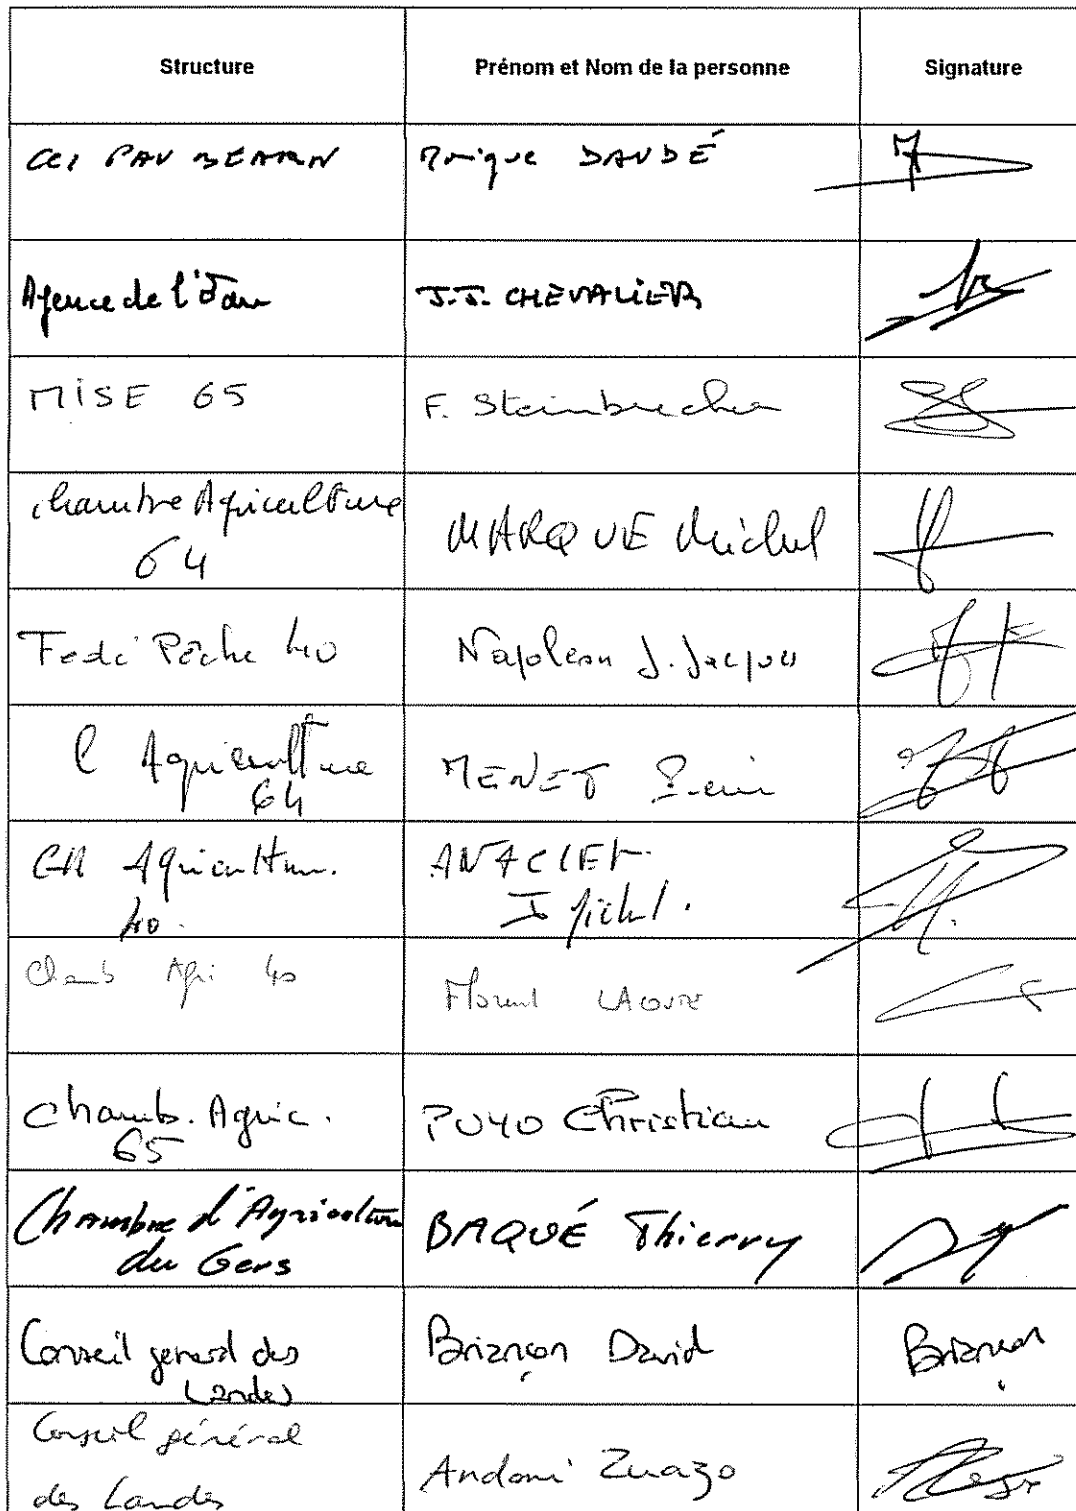 Structure Prénom et Nom de la personne Signature
CCI PAU BEARN Monique DAUDÉ
Agence de l'Eau J.J. CHEVALIER
MISE 65 F. Steinbrecher
Chambre Agriculture
64 MARQUE Michel
Fedé Pêche 40 Napoleon J. Jacques
C Agriculture
64 MENET
CH Agriculture.
40. ANACLET
J Michel.
Chamb Agri 40 Florent LACOSTE
Chamb. Agric.
65 PUYO Christian
Chambre d'Agriculture
du Gers BAQUÉ Thierry
Conseil general des
Landes Briançon David Briançon
Conseil général
des Landes Andoni Zuazo